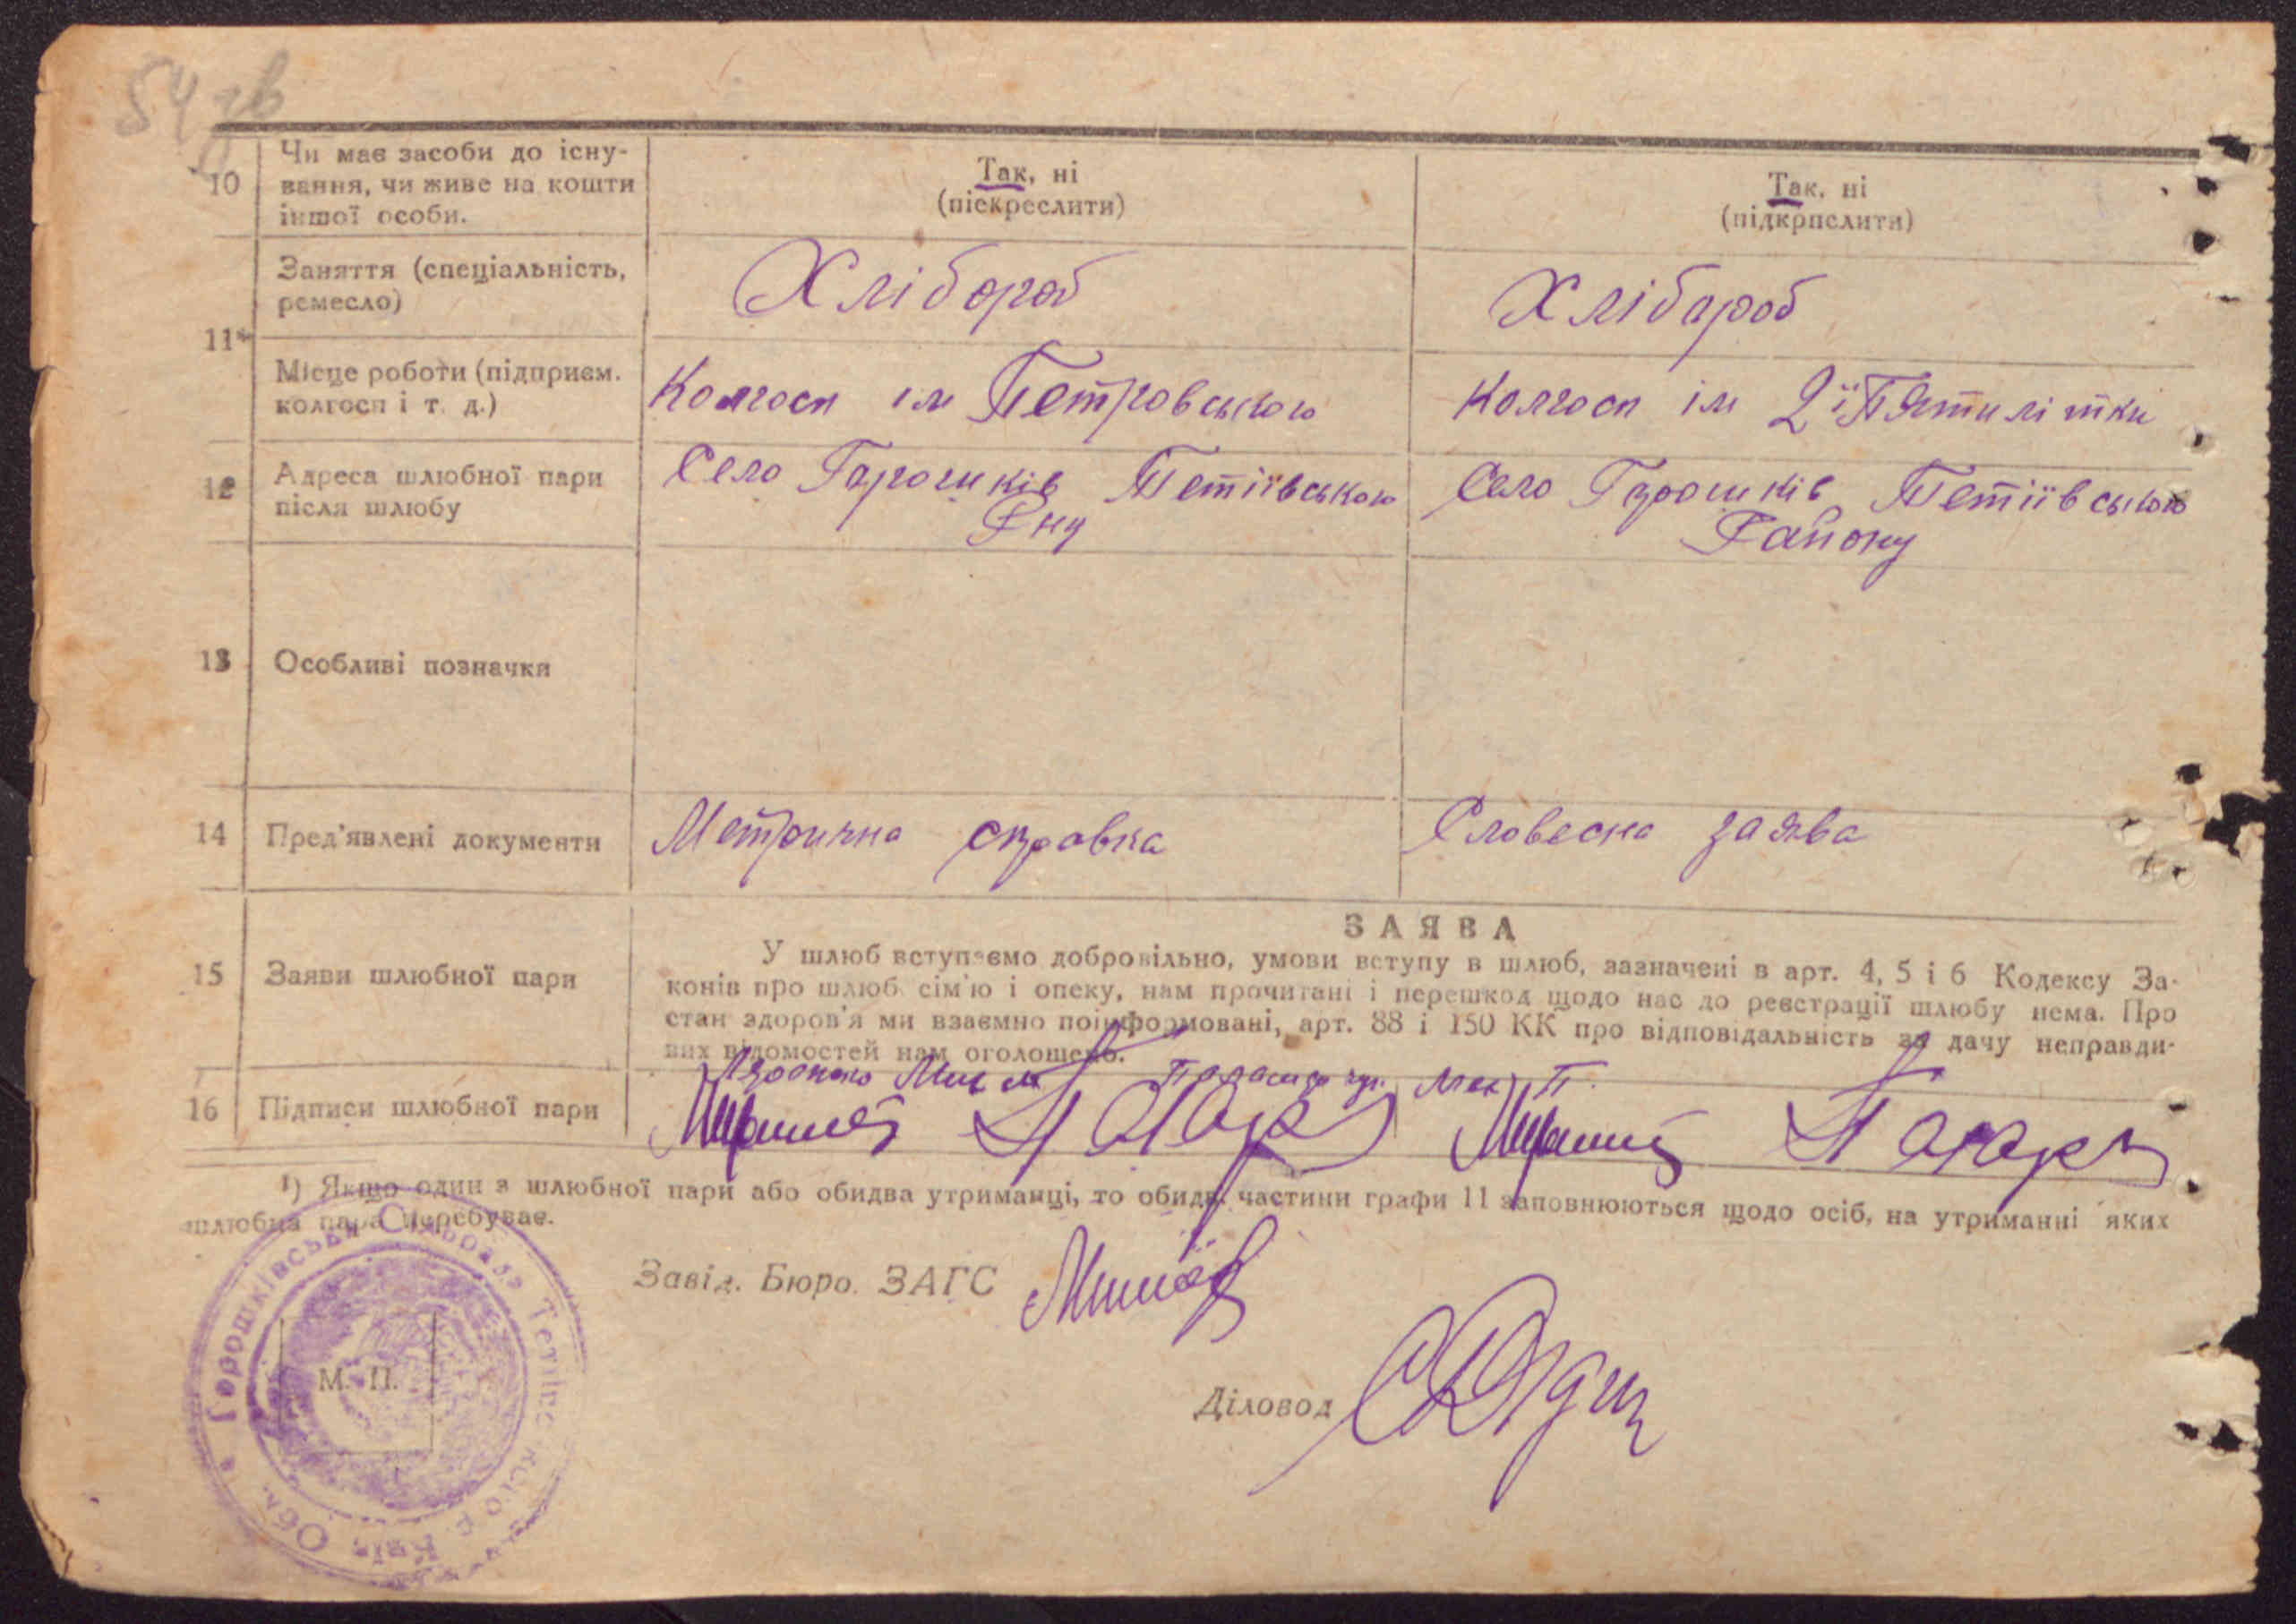 54 зв
10 Чи має засоби до існу-
вання, чи живе на кошти
іншої особи.
Так, ні
(піскреслити)
Так, ні
(підкрпслити)
11* Заняття (спеціальність,
ремесло)
Хлібороб
Хлібароб
Місце роботи (підприєм.
колгосп і т. д.)
Колгосп ім Петровського
Колгосп ім 2ї Пятилітки
12 Адреса шлюбної пари
після шлюбу
Село Горошків Тетіївського
Р-ну
Село Горошків Тетіївського
Району
13 Особливі позначки
14 Пред'явлені документи
Метрична справка
Словесна заява
15 Заяви шлюбної пари
ЗАЯВА
У шлюб вступаємо добровільно, умови вступу в шлюб, зазначені в арт. 4, 5 і 6 Кодексу За-
конів про шлюб, сім'ю і опеку, нам прочитані і перешкод щодо нас до реєстрації шлюбу нема. Про
стан здоров'я ми взаємно поінформовані, арт. 88 і 150 КК про відповідальність за дачу неправди-
вих відомостей нам оголошено.
16 Підписи шлюбної пари
1) Якщо один з шлюбної пари або обидва утриманці, то обидві частини графи 11 заповнюються щодо осіб, на утриманні яких
шлюбна пара перебуває.
Завід. Бюро ЗАГС
Діловод
М. П.
Горошківська Сільрада Тетіївського Р. Київ Обл.